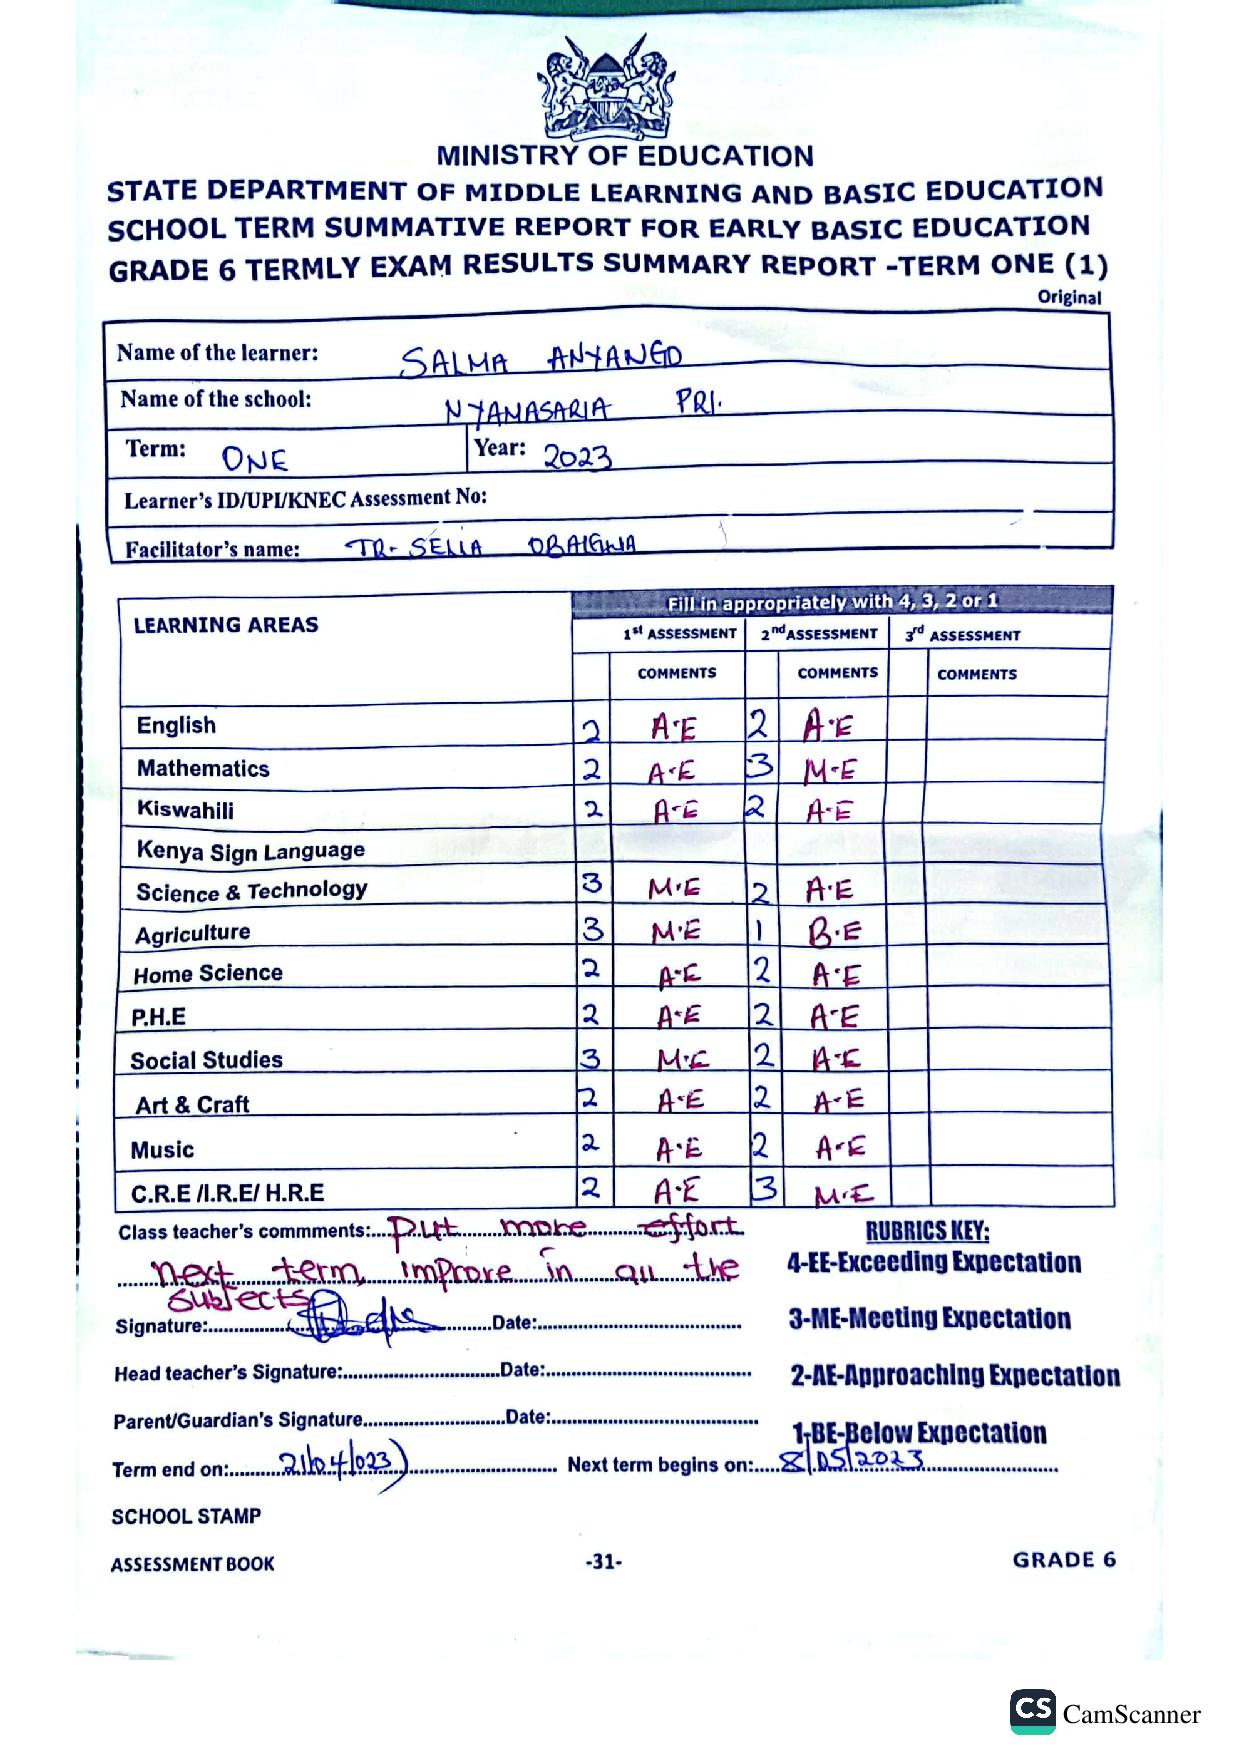 MINISTRY OF EDUCATION
STATE DEPARTMENT OF MIDDLE LEARNING AND BASIC EDUCATION
SCHOOL TERM SUMMATIVE REPORT FOR EARLY BASIC EDUCATION
GRADE 6 TERMLY EXAM RESULTS SUMMARY REPORT -TERM ONE (1)
Original
Name of the learner: SALMA ANYANGO
Name of the school: NYAMASARIA PRI.
Term: ONE Year: 2023
Learner's ID/UPI/KNEC Assessment No:
Facilitator's name: TR- SELIA
LEARNING AREAS Fill in appropriately with 4, 3, 2 or 1
1st ASSESSMENT 2nd ASSESSMENT 3rd ASSESSMENT
COMMENTS COMMENTS COMMENTS
English 2 A·E 2 A·E
Mathematics 2 A·E 3 M·E
Kiswahili 2 A-E 2 A·E
Kenya Sign Language
Science & Technology 3 M·E 2 A·E
Agriculture 3 M·E 1 B·E
Home Science 2 A·E 2 A·E
P.H.E 2 A·E 2 A·E
Social Studies 3 M·E 2 A·E
Art & Craft 2 A·E 2 A-E
Music 2 A·E 2 A·E
C.R.E /I.R.E/ H.R.E 2 A·E 3 M·E
Class teacher's commments:....Put more effort
next term, improve in all the
subjects
RUBRICS KEY:
4-EE-Exceeding Expectation
3-ME-Meeting Expectation
2-AE-Approaching Expectation
1-BE-Below Expectation
Signature:.......... Date:..........
Head teacher's Signature:.......... Date:..........
Parent/Guardian's Signature.......... Date:..........
Term end on:.....21/04/023) Next term begins on:.....8/05/2023
SCHOOL STAMP
ASSESSMENT BOOK -31- GRADE 6
CS CamScanner